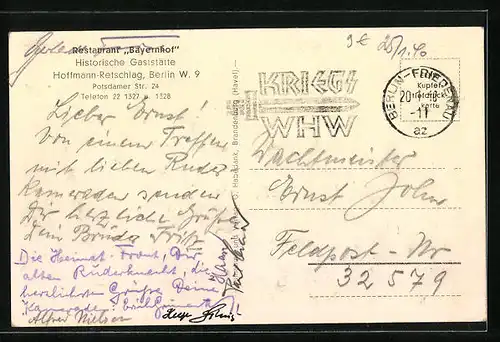 Restaurant „Bayernhof"
Historische Gaststätte
Hoffmann-Retschlag, Berlin W. 9
Potsdamer Str. 24
Telefon 22 1327 u. 1328
Lieber Ernst!
Von einem Treffen
mit lieben Ruder
Kameraden senden
Dir herzliche Grüße
Dein Bruder Fritz
Die Heimat-Front, Dir,
alten Ruderknecht, die
herzlichsten Grüße Deine
Kamerade
Alfred Nielsen
25/1.40
KRIEGS
WHW
BERLIN-FRIEDENAU
20.1.40
-11
az
Kupfer
tiefdruck
karte
Wachtmeister
Ernst John
Feldpost-Nr
32579